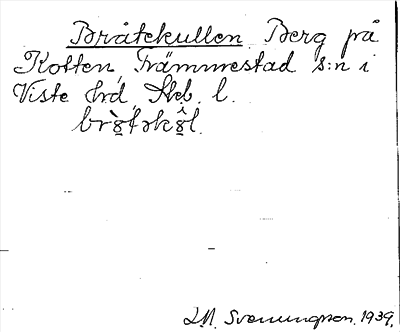 Bråtekullen Berg på
Kotten, Främmestad s:n i
Viste hrd, Skb. l.
J.M. Svenungsson. 1939.